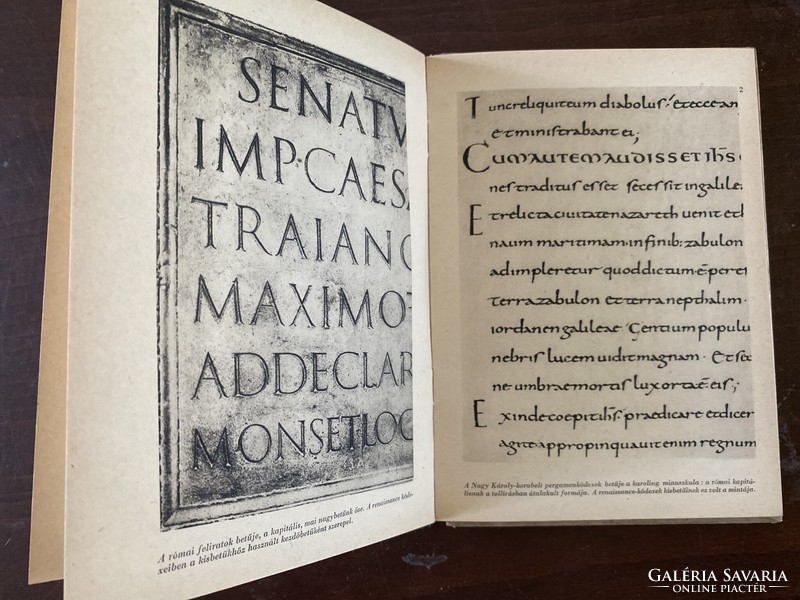 SENATV
IMP·CAESA
TRAIANO
MAXIMO
ADDECLAR
MONSETLOC
A római feliratok betűje, a kapitális, mai nagybetűnk őse. A renaissance kódexeiben a kisbetűkhöz használt kezdőbetűként szerepel.
2
Tuncreliquiteum diabolus. et ecce an
et ministrabant ei;
Cum autem audisset ihs
nes traditus esset secessit in galilea
Et relicta ciuitate nazareth uenit et h
naum maritimam. in finib: zabulon
adimpleretur quod dictum. e. per e
terra zabulon et terra nepthalim.
iordanen galileae Gentium populu
nebris lucem uidit magnam. Et se
ne umbrae mortis lux orta e. eis;
Exinde coepit ihs. praedicare et dicer
agite appropinquauit enim regnum
A Nagy Károly-korabeli pergamenkódexek betűje a karoling minuszkula: a római kapitá-
lisnak a tollírásban átalakult formája. A renaissance-kódexek kisbetűinek ez volt a mintája.
GALÉRIA SAVARIA
ONLINE PIACTÉR